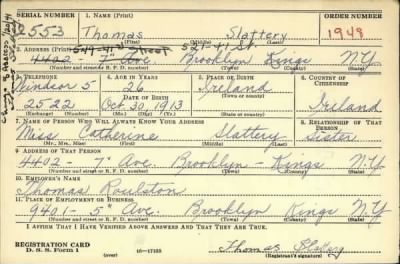 SERIAL NUMBER 1. NAME (Print) ORDER NUMBER
2553 Thomas Slattery 1948
(First) (Middle) (Last)
549-41st Street 521-41 St.
2. ADDRESS (Print)
4402 - 7" Ave. Brooklyn Kings N.Y.
(Number and street or R. F. D. number) (Town) (County) (State)
3. TELEPHONE 4. AGE IN YEARS 5. PLACE OF BIRTH 6. COUNTRY OF CITIZENSHIP
Windsor 5 26 Ireland
DATE OF BIRTH (Town or county)
2522 Oct 30 1913 Ireland
(Exchange) (Number) (Mo.) (Day) (Yr.) (State or country)
7. NAME OF PERSON WHO WILL ALWAYS KNOW YOUR ADDRESS 8. RELATIONSHIP OF THAT PERSON
Miss Catherine Slattery Sister
(Mr., Mrs., Miss) (First) (Middle) (Last)
9. ADDRESS OF THAT PERSON
4402 - 7" Ave. Brooklyn - Kings N.Y.
(Number and street or R. F. D. number) (Town) (County) (State)
10. EMPLOYER'S NAME
Thomas Roulston
11. PLACE OF EMPLOYMENT OR BUSINESS
9401 - 5" Ave. Brooklyn Kings N.Y.
(Number and street or R. F. D. number) (Town) (County) (State)
I AFFIRM THAT I HAVE VERIFIED ABOVE ANSWERS AND THAT THEY ARE TRUE.
REGISTRATION CARD
D. S. S. Form 1 (over) 16-17105 Thomas Slattery
(Registrant's signature)